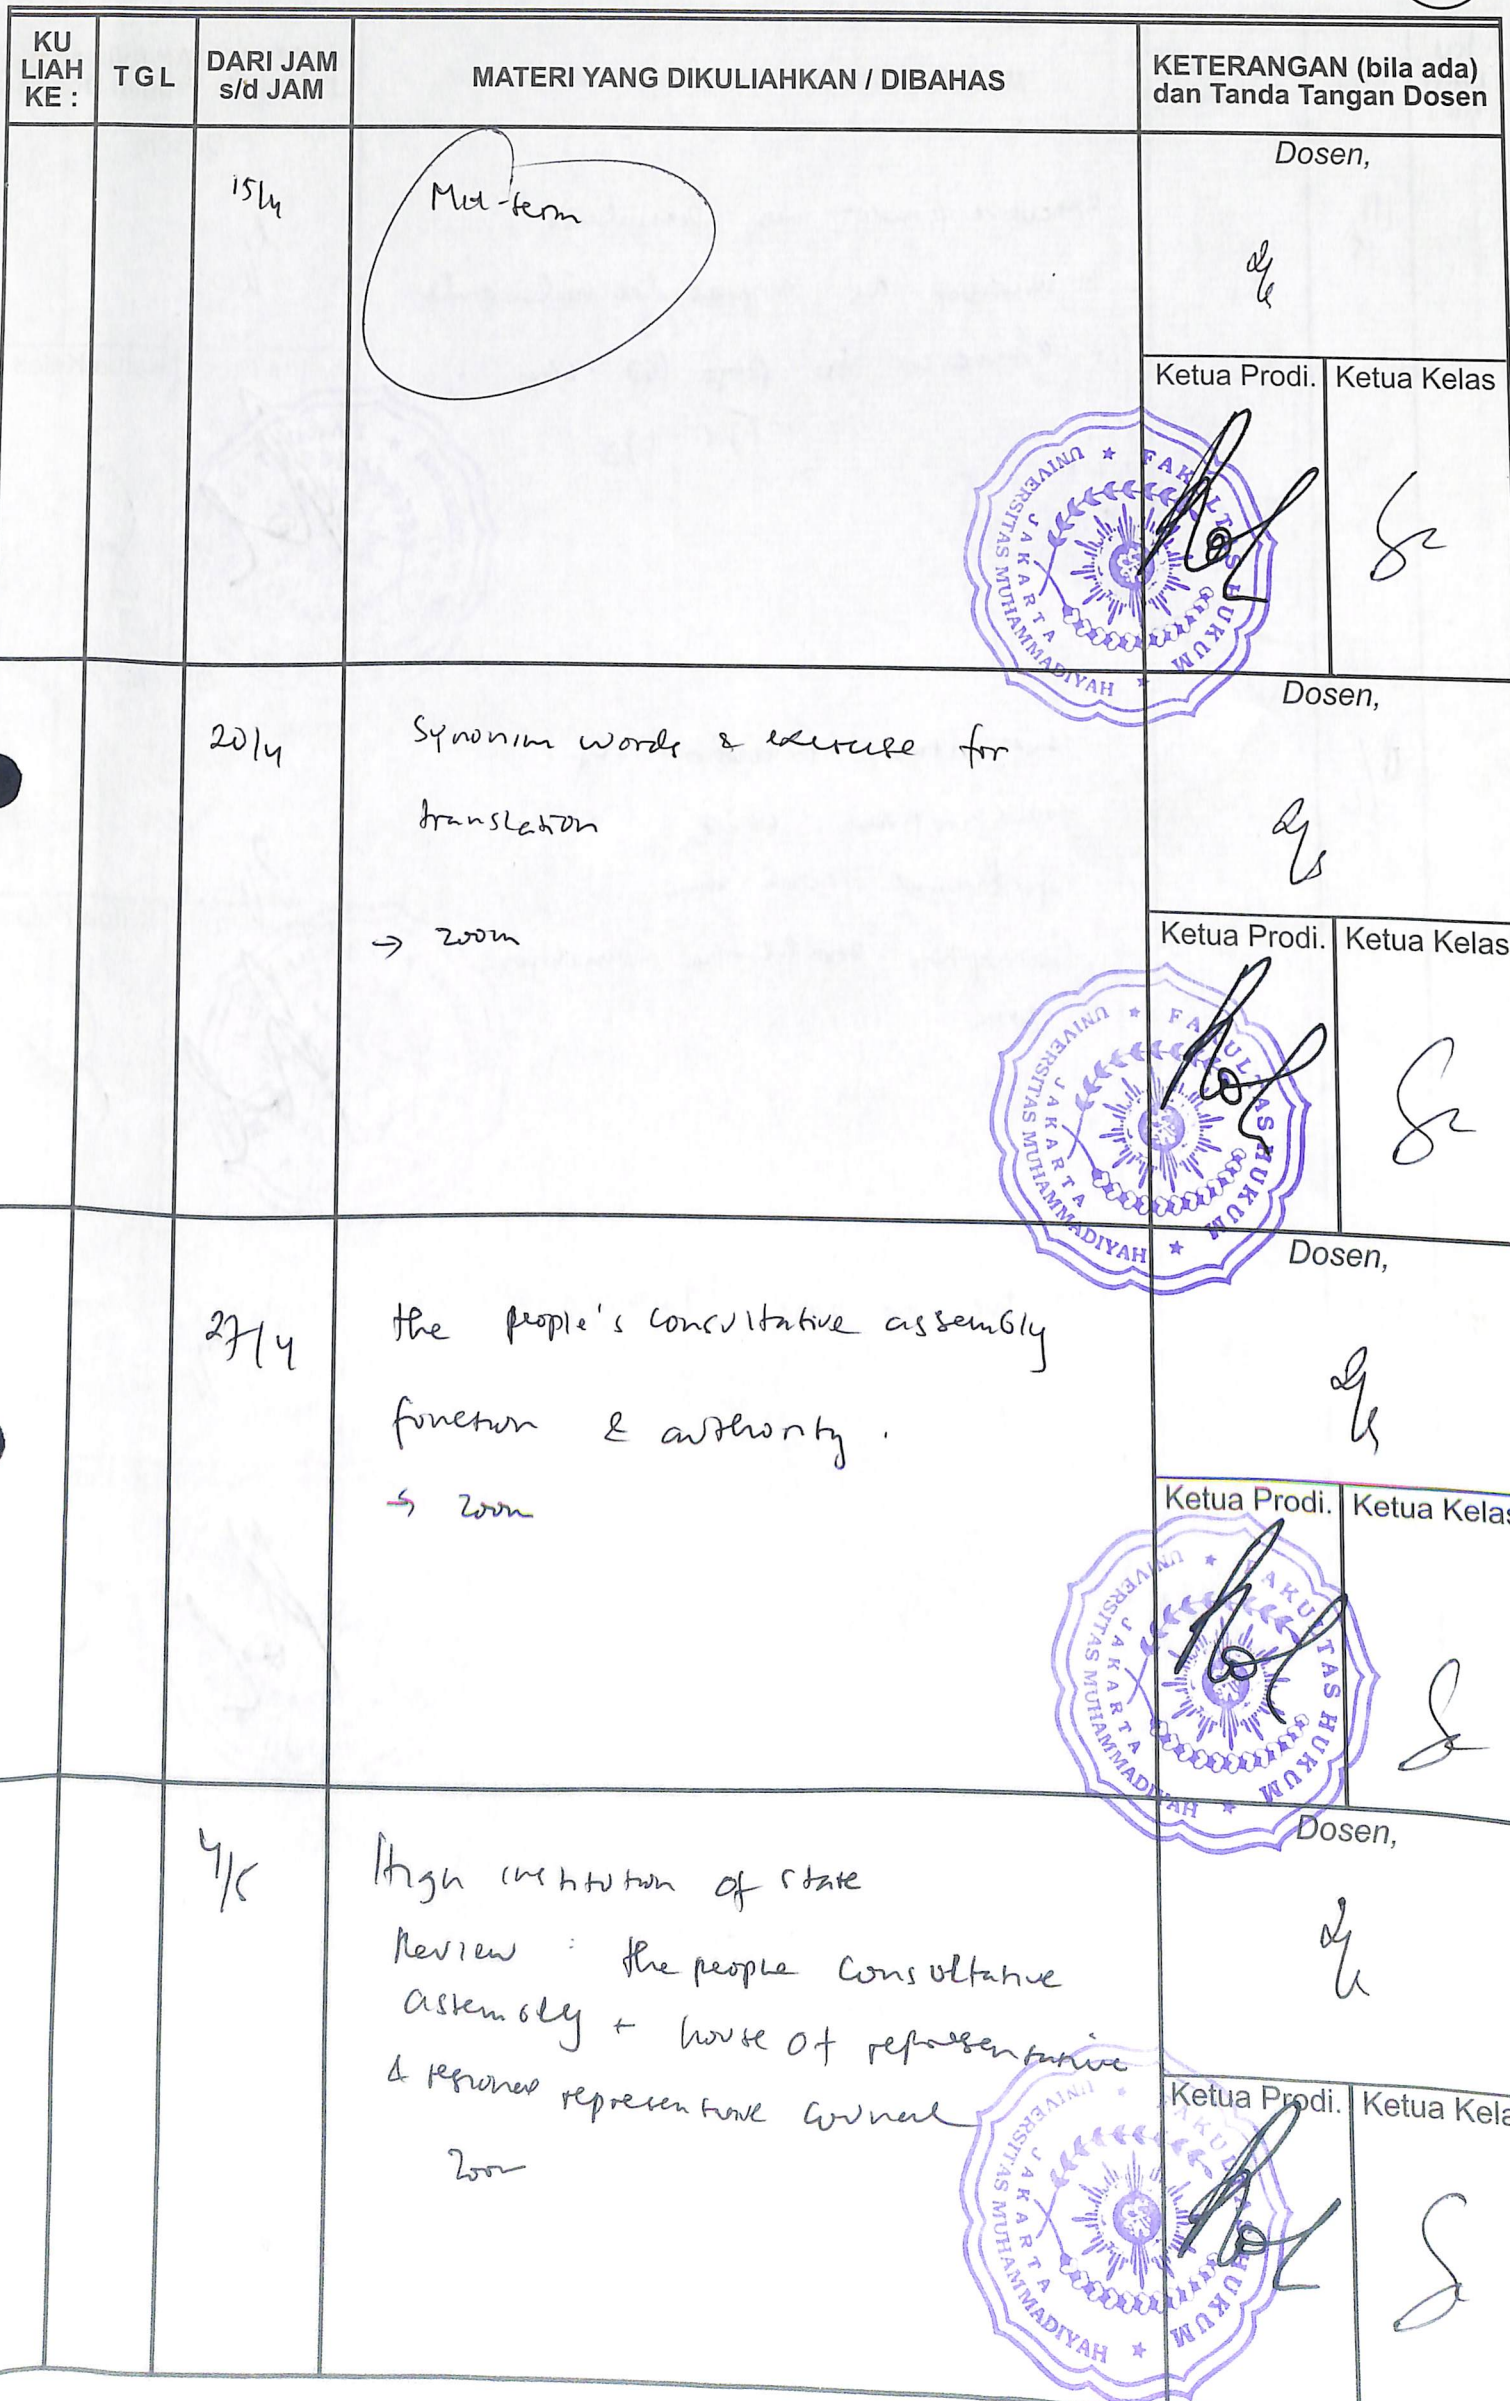 KU LIAH KE :
TGL
DARI JAM s/d JAM
MATERI YANG DIKULIAHKAN / DIBAHAS
KETERANGAN (bila ada) dan Tanda Tangan Dosen
15/4
Mid-term
Dosen,
Ketua Prodi.
Ketua Kelas
UNIVERSITAS MUHAMMADIYAH ★ FAKULTAS HUKUM ★
JAKARTA
20/4
Synonim words & exercise for
translation
→ zoom
Dosen,
Ketua Prodi.
Ketua Kelas
UNIVERSITAS MUHAMMADIYAH ★ FAKULTAS HUKUM ★
JAKARTA
27/4
the people's consultative assembly
function & authority .
→ zoom
Dosen,
Ketua Prodi.
Ketua Kelas
UNIVERSITAS MUHAMMADIYAH ★ FAKULTAS HUKUM ★
JAKARTA
4/5
High institution of state
Review : the people consultative
assembly + house of representative
& regional representative council
zoom
Dosen,
Ketua Prodi.
Ketua Kela
UNIVERSITAS MUHAMMADIYAH ★ FAKULTAS HUKUM ★
JAKARTA